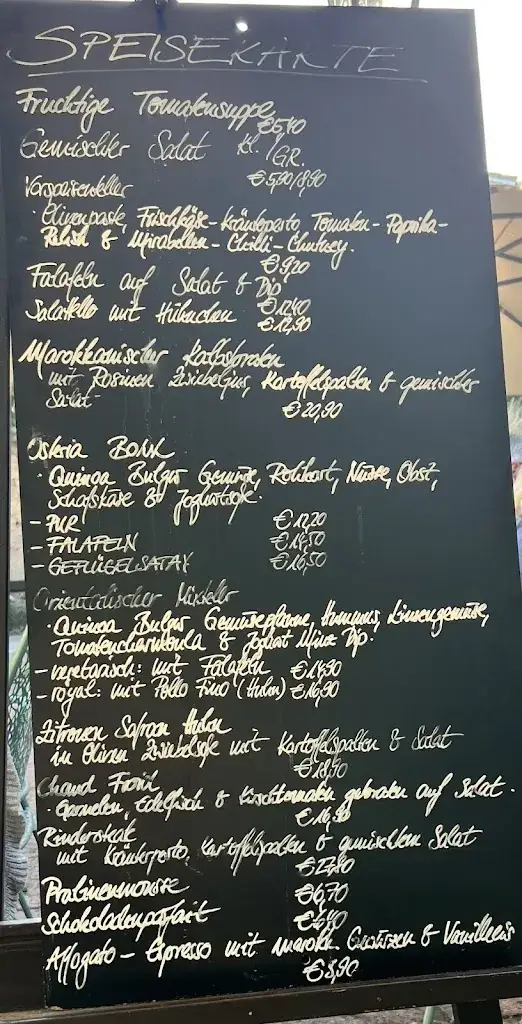 SPEISEKARTE
Fruchtige Tomatensuppe
€5,40
Gemischter Salat Kl./GR.
€5,90/8,90
Vorspeisenteller
· Olivenpaste, Frischkäse-Kräuterpesto, Tomaten-Paprika-
Relish & Mirabellen-Chilli-Chutney.
€9,20
Falafeln auf Salat & Dip
€12,40
Salatteller mit Hühnchen €12,90
Marokkanischer Kalbsbraten
mit Rosinen Zwiebeljus, Kartoffelspalten & gemischter
Salat
€20,90
BOWL
· Quinoa Bulgur Gemüse, Rohkost, Nüsse, Obst,
Schafskäse & Joghurtsoße.
- PUR €12,20
- FALAFELN €14,50
- GEFLÜGELSATAY €16,50
Orientalischer Mixteller
· Quinoa Bulgur Gemüsepfanne, Hummus, Linsengemüse,
Tomatencharmoula & Joghurt Minz Dip.
- vegetarisch: mit Falafeln €14,90
- royal: mit Pollo Fino (Huhn) €16,90
Zitronen Safran Huhn
in Oliven Zwiebelsoße mit Kartoffelspalten & Salat
€18,90
· Garnelen, Edelfisch & Kirschtomaten gebraten auf Salat.
€16,90
Rindersteak
mit Kräuterpesto, Kartoffelspalten & gemischtem Salat
€27,80
Pralinenmousse €6,70
Schokoladenparfait €6,40
Affogato - Espresso mit marokk. Gewürzen & Vanilleeis
€5,90